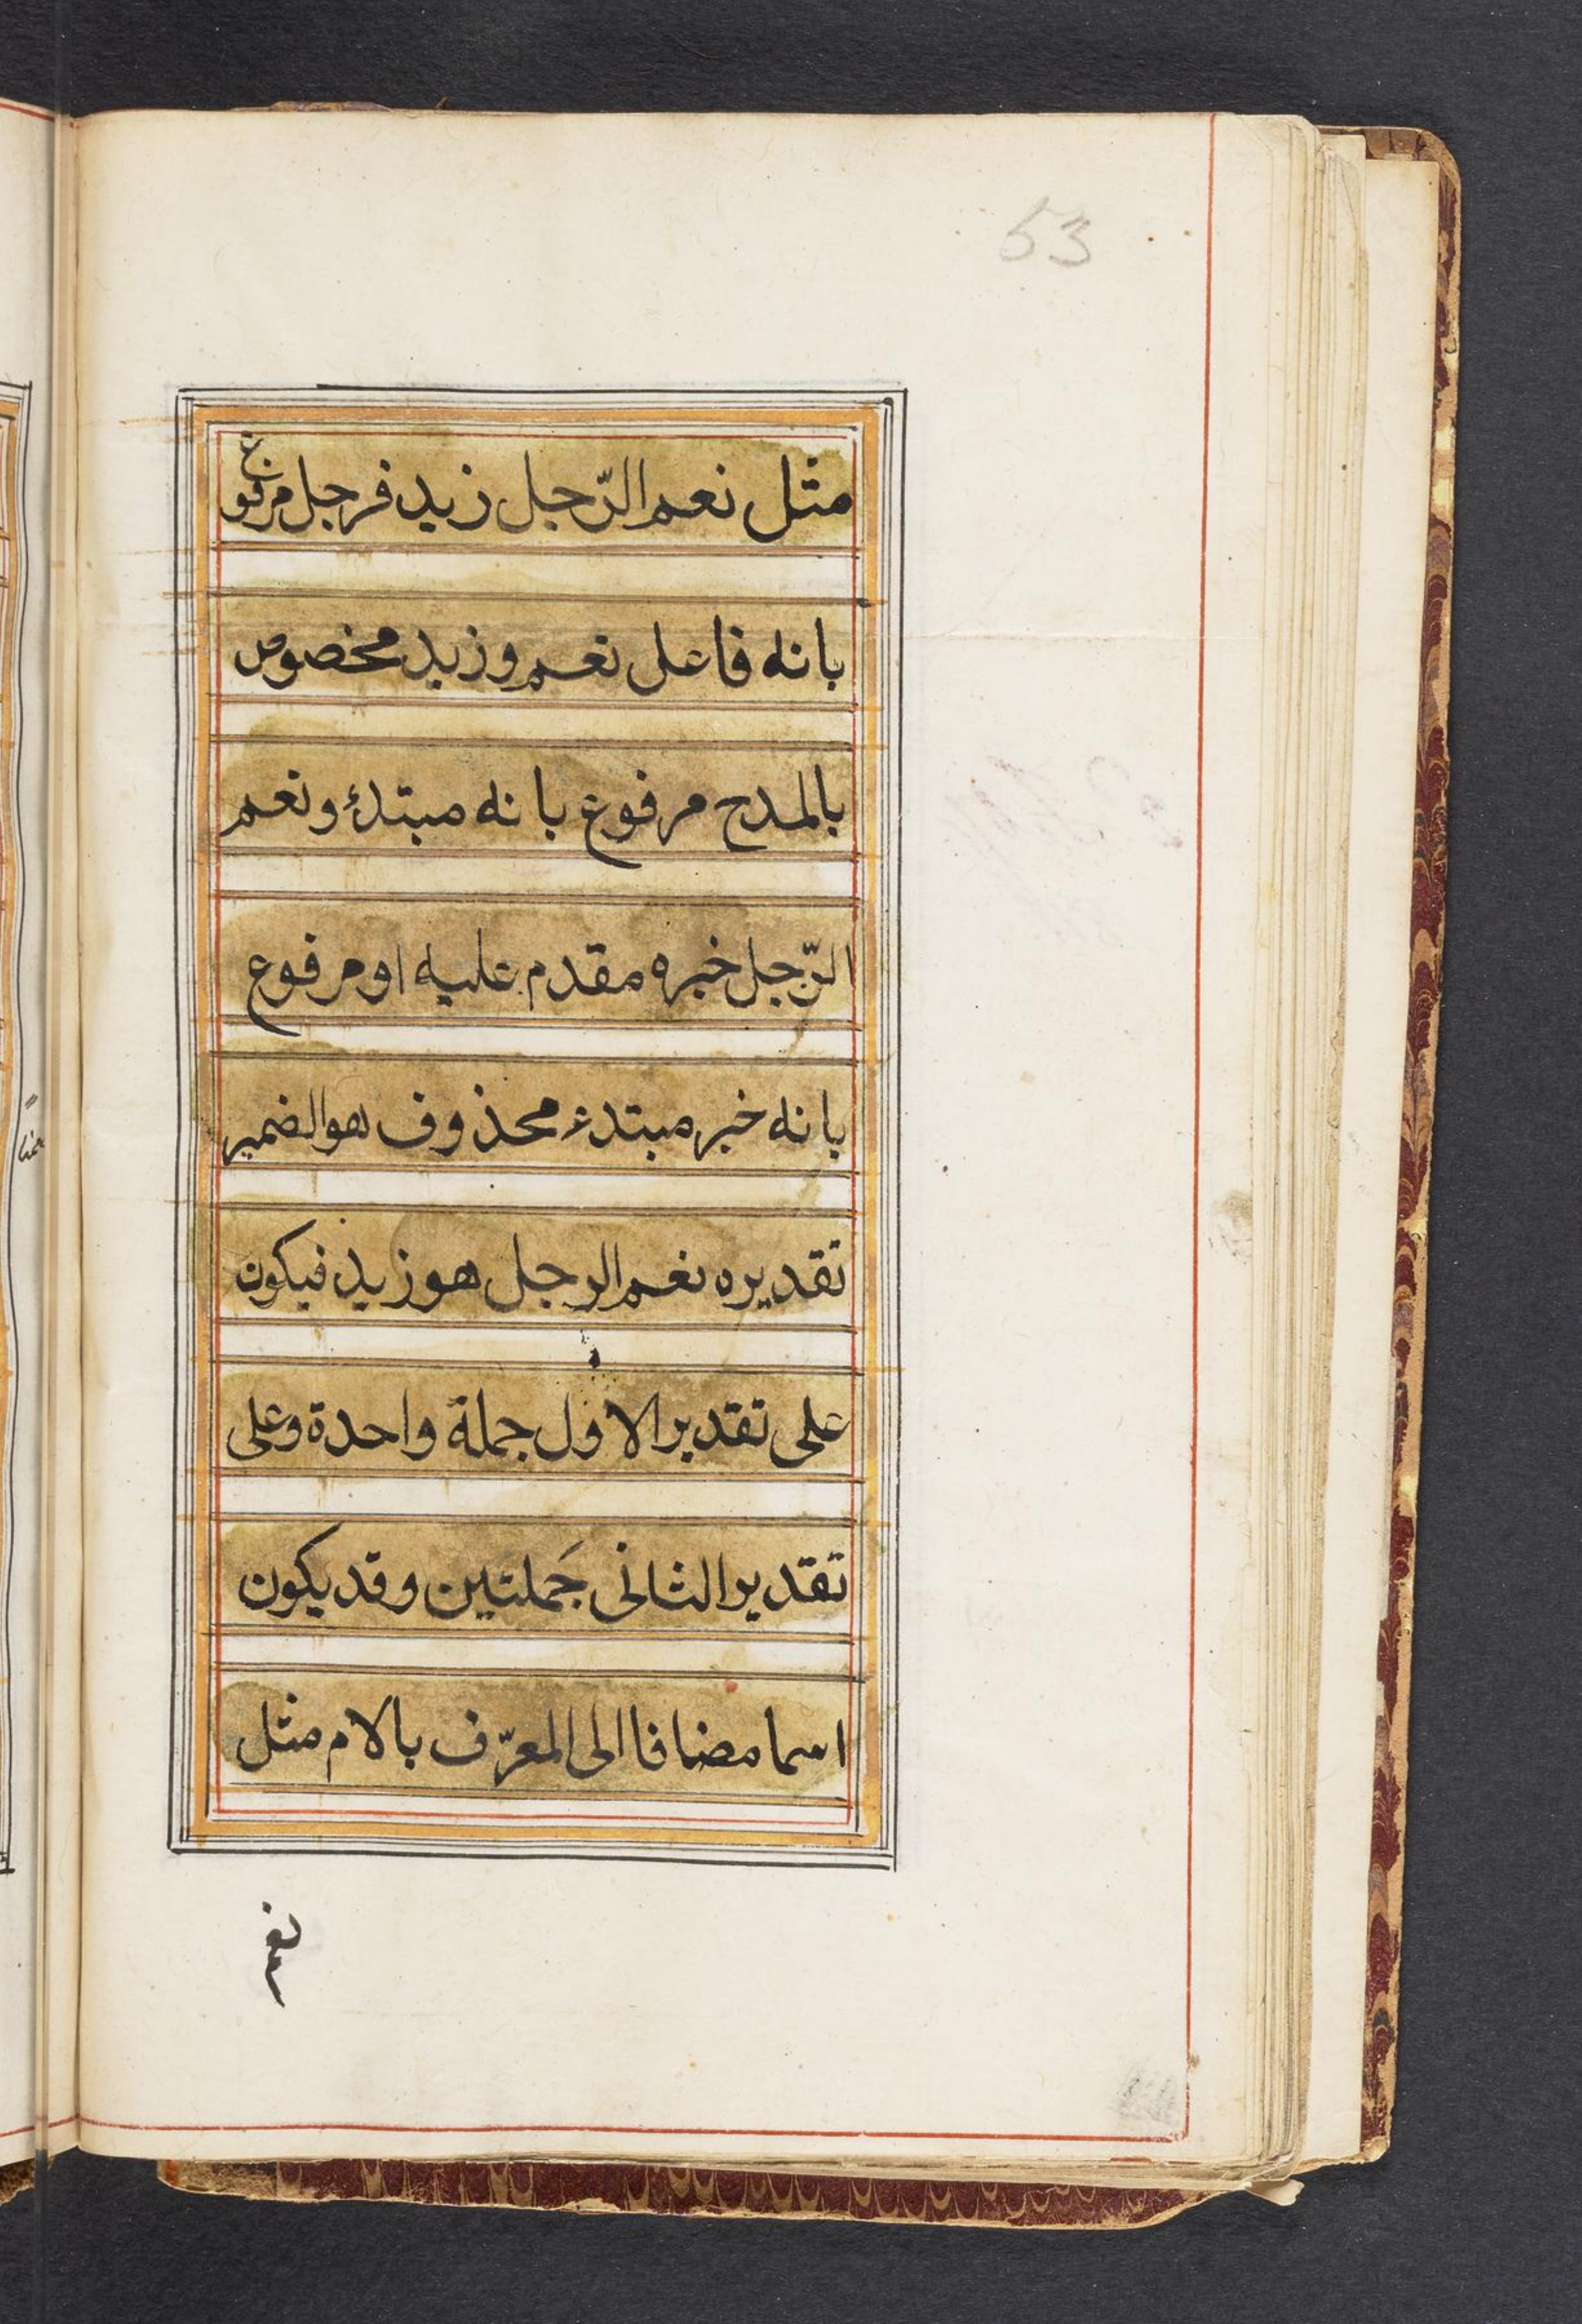 53
مثل نعم الرّجل زيد فرجل مرفوع
بانه فاعل نعم وزيد مخصوص
بالمدح مرفوع بانه مبتدئ ونعم
الرّجل خبره مقدم عليه او مرفوع
بانه خبر مبتدء محذوف هو الضمير
تقديره نعم الرجل هو زيد فيكون
على تقدير الاول جملة واحدة وعلى
تقدير الثانى جَملتين وقد يكون
اسما مضافا الى المعرّف بالام مثل
نعم